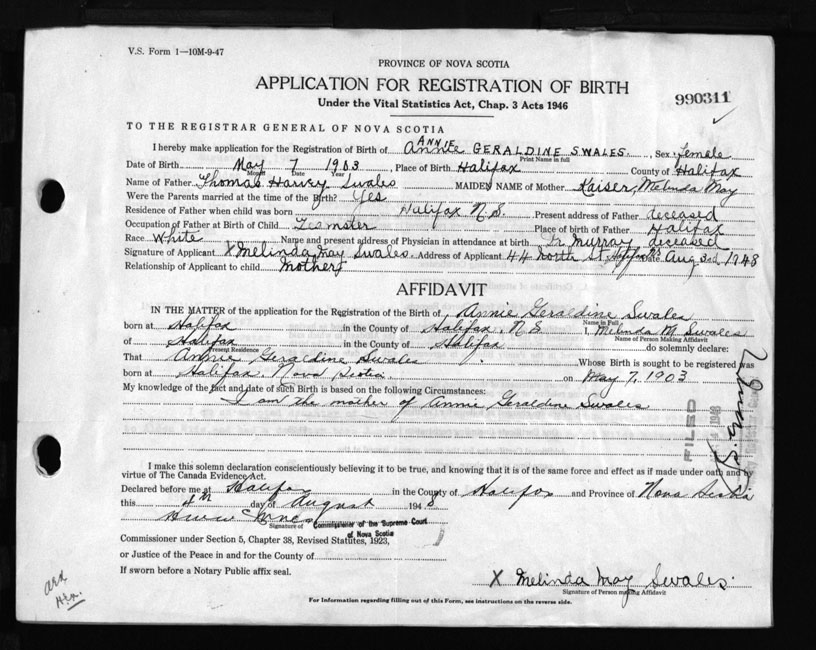 V.S. Form 1—10M-9-47
PROVINCE OF NOVA SCOTIA
APPLICATION FOR REGISTRATION OF BIRTH
990311
Under the Vital Statistics Act, Chap. 3 Acts 1946
TO THE REGISTRAR GENERAL OF NOVA SCOTIA
ANNIE
I hereby make application for the Registration of Birth of Annie GERALDINE SWALES. , Sex Female
Print Name in full
Date of Birth May 7 1903 , Place of Birth Halifax County of Halifax
Month Date Year
Name of Father Thomas Harvey Swales MAIDEN NAME of Mother Kaiser, Melinda May
Were the Parents married at the time of the Birth? Yes
Residence of Father when child was born Halifax N.S. Present address of Father deceased
Occupation of Father at Birth of Child Teamster Place of birth of Father Halifax
Race White Name and present address of Physician in attendance at birth Dr. Murray deceased
Signature of Applicant X Melinda May Swales. Address of Applicant 44 North St. Date Aug 3rd 1948
Relationship of Applicant to child Mother
AFFIDAVIT
IN THE MATTER of the application for the Registration of the Birth of Annie Geraldine Swales
Name in Full
born at Halifax in the County of Halifax, N.S I, Melinda M. Swales
Name of Person Making Affidavit
of Halifax in the County of Halifax do solemnly declare:
Present Residence
That Annie Geraldine Swales Whose Birth is sought to be registered was
born at Halifax Nova Scotia on May 7, 1903
My knowledge of the fact and date of such Birth is based on the following Circumstances:
I am the mother of Annie Geraldine Swales
FILED
I make this solemn declaration conscientiously believing it to be true, and knowing that it is of the same force and effect as if made under oath and by
virtue of The Canada Evidence Act.
Declared before me at Halifax in the County of Halifax and Province of Nova Scotia
this 4th day of August 1948
Signature of Commissioner of the Supreme Court
of Nova Scotia
Commissioner under Section 5, Chapter 38, Revised Statutes, 1923,
or Justice of the Peace in and for the County of
If sworn before a Notary Public affix seal.
X Melinda May Swales.
Signature of Person making Affidavit
For Information regarding filling out of this Form, see instructions on the reverse side.